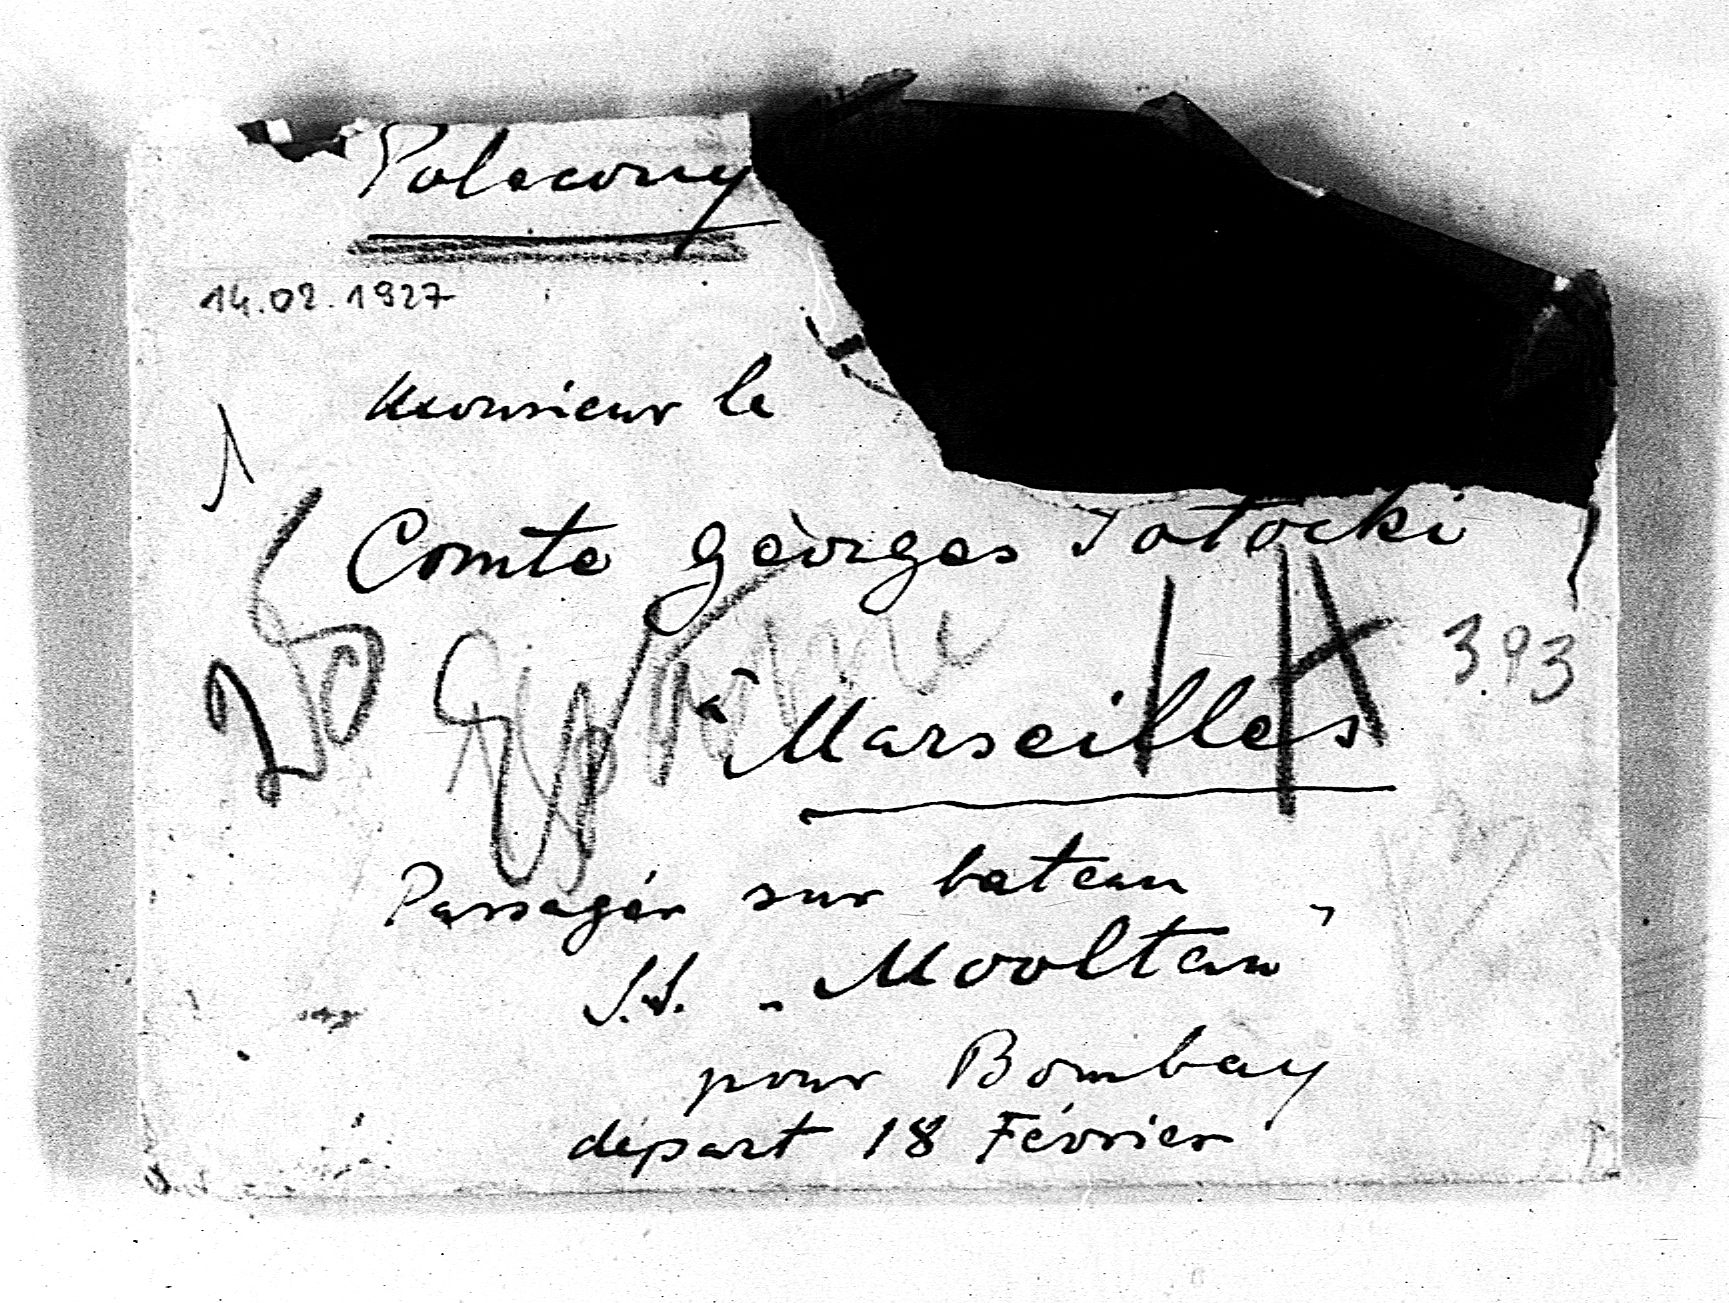 Polecony
14.02.1927
Monsieur le
Comte Georges Potocki
à Marseilles
3.93
Passagér sur bateau
S.S. „Mooltan”
pour Bombay
départ 18 Février